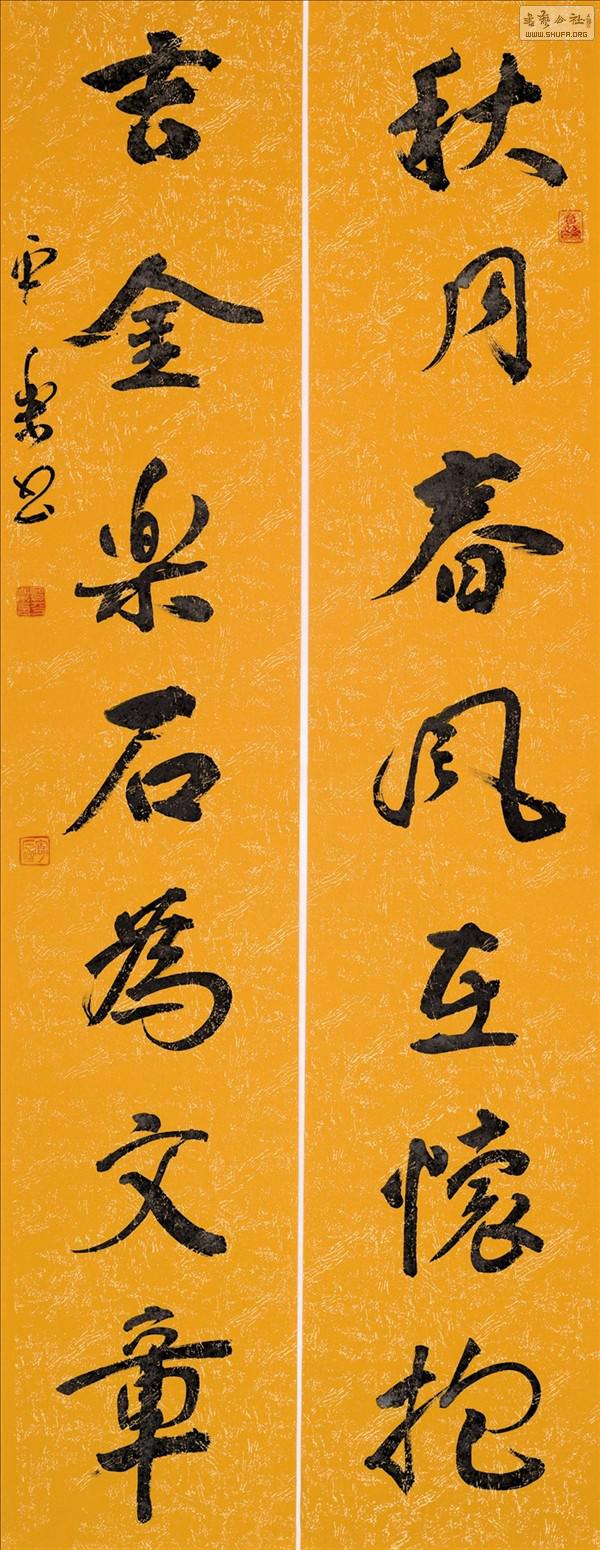 秋月春風在懷抱
吉金楽石為文章
書藝公社
WWW.SHUFA.ORG